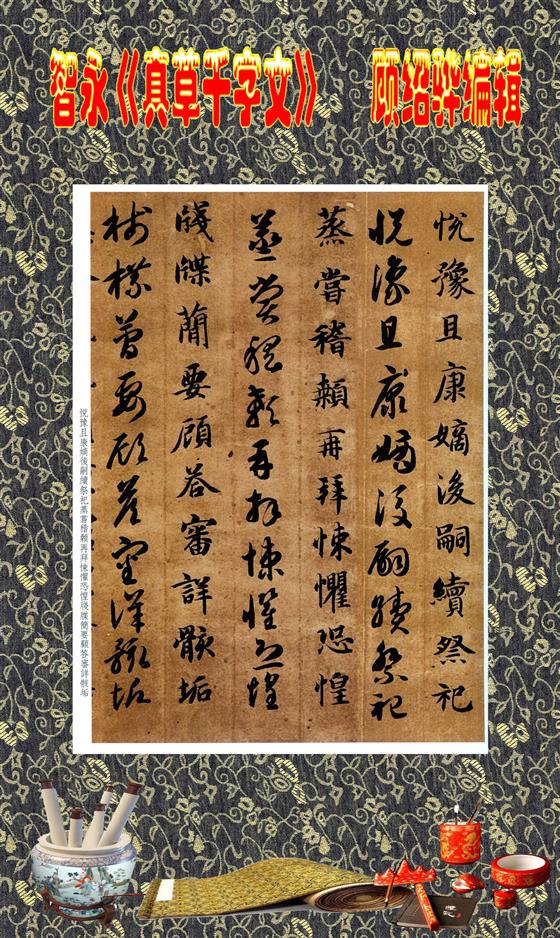 智永《真草千字文》 顾绍骅编辑
悅豫且康嫡後嗣續祭祀
悅豫且康嫡後嗣續祭祀
蒸嘗稽顙再拜悚懼恐惶
蒸嘗稽顙再拜悚懼恐惶
牋牒簡要顧答審詳骸垢
牋牒簡要顧答審詳骸垢
悅豫且康嫡後嗣續祭祀蒸嘗稽顙再拜悚懼恐惶牋牒簡要顧答審詳骸垢